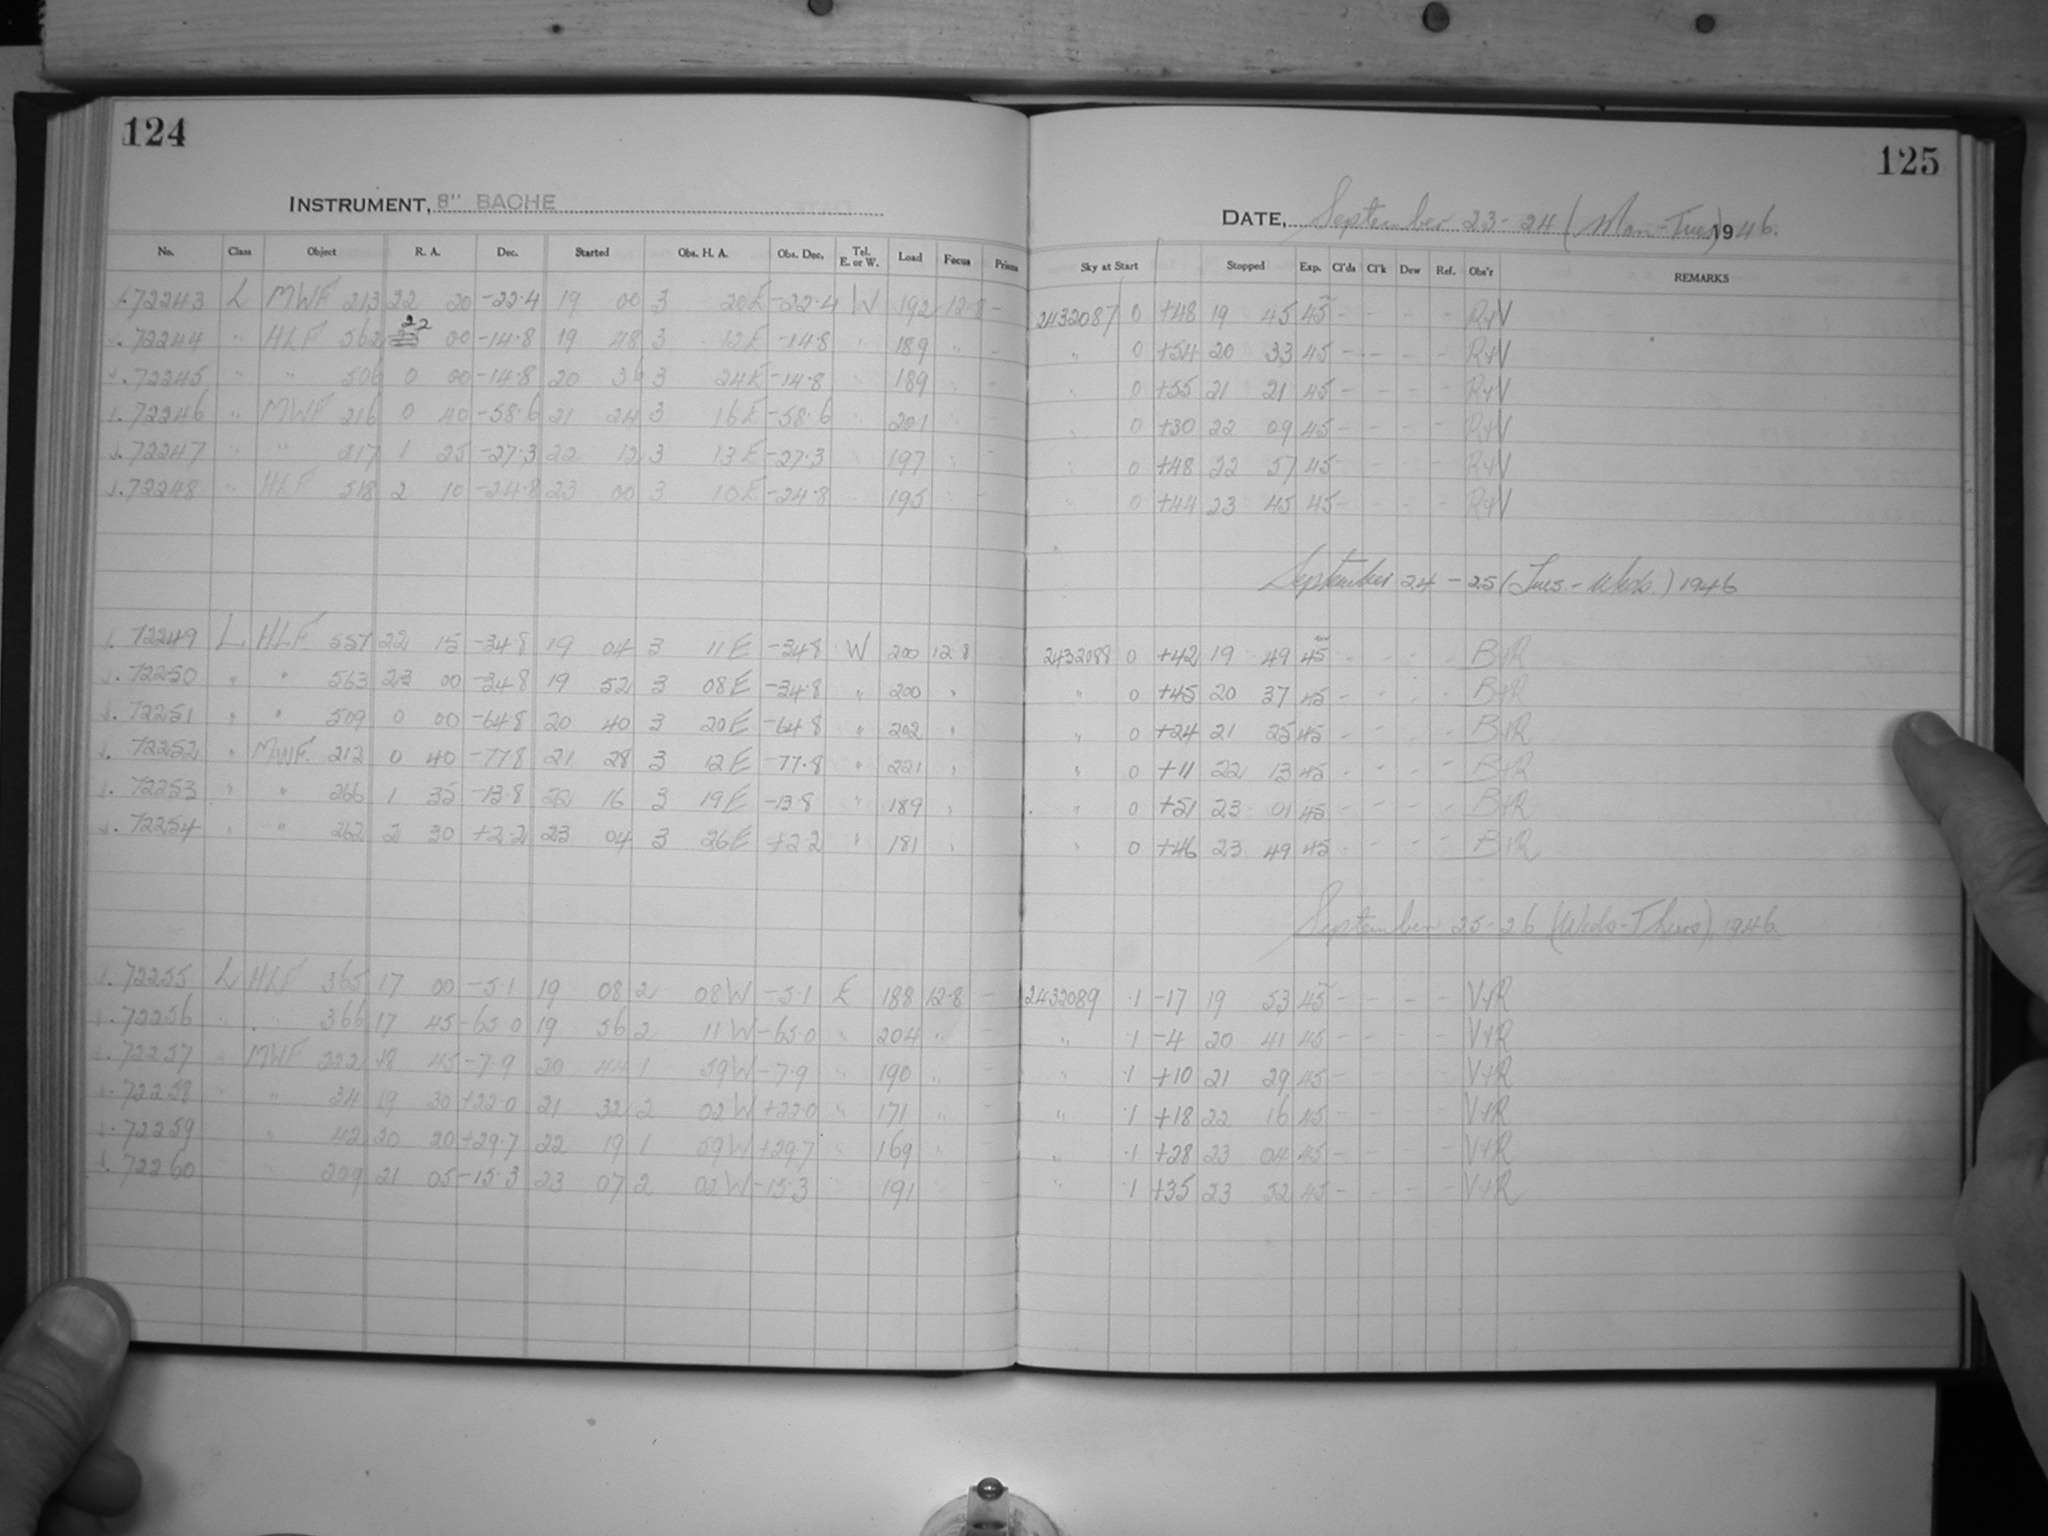 124
INSTRUMENT, 8" BACHE
No. Class Object R. A. Dec. Started Obs. H. A. Obs. Dec. Tel. E. or W. Load Focus Prism
72243 L MWF 213 22 20 -22.4 19 00 3 20E -22.4 W 192 12.8 -
72244 " HLF 562 22 00 -14.8 19 48 3 12E -14.8 " 189 " -
72245 " " 506 0 00 -14.8 20 36 3 24E -14.8 " 189 " -
72246 " MWF 216 0 40 -58.6 21 24 3 16E -58.6 " 201 " -
72247 " " 217 1 25 -27.3 22 12 3 13E -27.3 " 197 " -
72248 " HLF 518 2 10 -24.8 23 00 3 10E -24.8 " 195 " -
72249 L HLF 557 22 15 -34.8 19 04 3 11E -34.8 W 200 12.8
72250 " " 563 23 00 -34.8 19 52 3 08E -34.8 " 200 "
72251 " " 509 0 00 -64.8 20 40 3 20E -64.8 " 202 "
72252 " MWF. 212 0 40 -77.8 21 28 3 12E -77.8 " 221 "
72253 " " 266 1 35 -13.8 22 16 3 19E -13.8 " 189 "
72254 " " 262 2 30 +2.2 23 04 3 26E +2.2 " 181 "
72255 L HLF 365 17 00 -5.1 19 08 2 08W -5.1 E 188 12.8 -
72256 " " 366 17 45 -65.0 19 56 2 11W -65.0 " 204 " -
72257 " MWF 222 18 45 -7.9 20 44 1 59W -7.9 " 190 " -
72258 " " 24 19 30 +22.0 21 32 2 02W +22.0 " 171 " -
72259 " 42 20 20 +29.7 22 19 1 59W +29.7 " 169 " -
72260 " 209 21 05 -15.3 23 07 2 02W -15.3 191 -
125
DATE, September 23-24 (Mon-Tues) 1946.
Sky at Start Stopped Exp. Cl'ds Cl'k Dew Ref. Obs'r REMARKS
2432087 0 +48 19 45 45 - - - - R+V
" 0 +54 20 33 45 - - - - R+V
" 0 +55 21 21 45 - - - - R+V
" 0 +30 22 09 45 - - - - R+V
" 0 +48 22 57 45 - - - - R+V
" 0 +44 23 45 45 - - - - R+V
September 24-25 (Tues-Weds.) 1946
2432088 0 +42 19 49 45 - - - - B+R
" 0 +45 20 37 45 - - - - B+R
" 0 +24 21 25 45 - - - - B+R
" 0 +11 22 13 45 - - - - B+R
" 0 +51 23 01 45 - - - - B+R
" 0 +46 23 49 45 - - - - B+R
September 25-26 (Weds-Thurs), 1946
2432089 .1 -17 19 53 45 - - - - V+R
" .1 -4 20 41 45 - - - - V+R
" .1 +10 21 29 45 - - - - V+R
" .1 +18 22 16 45 - - - - V+R
" .1 +28 23 04 45 - - - - V+R
" .1 +35 23 52 45 - - - - V+R